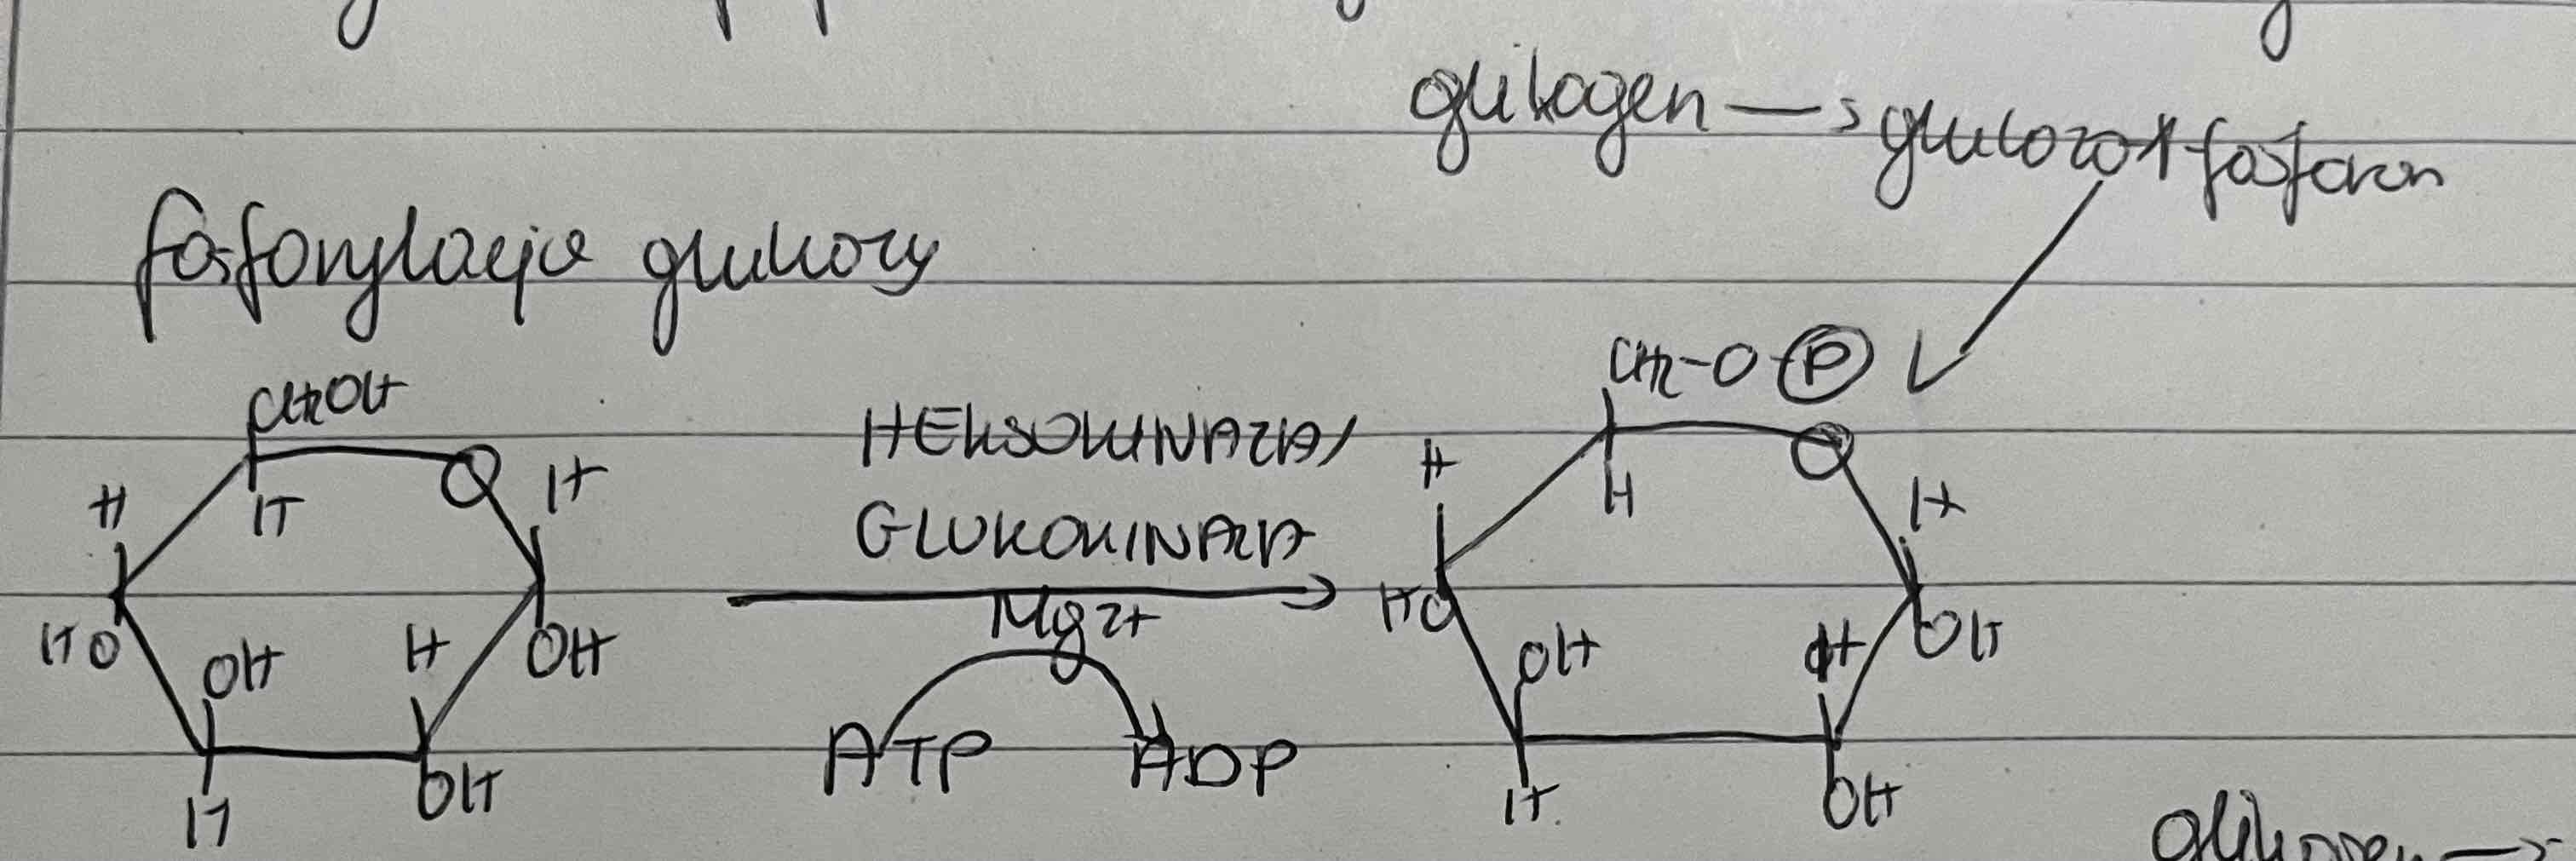 glikogen → glukozo 1 fosforan
fosforylacja glukozy
CH2OH
H
H
O
H
HO
OH
H
OH
H
OH
HEKSOKINAZA/
GLUKOKINAZA
Mg2+
ATP ADP
CH2-O-P
H
H
O
H
HO
OH
H
OH
H
OH
glikogen →